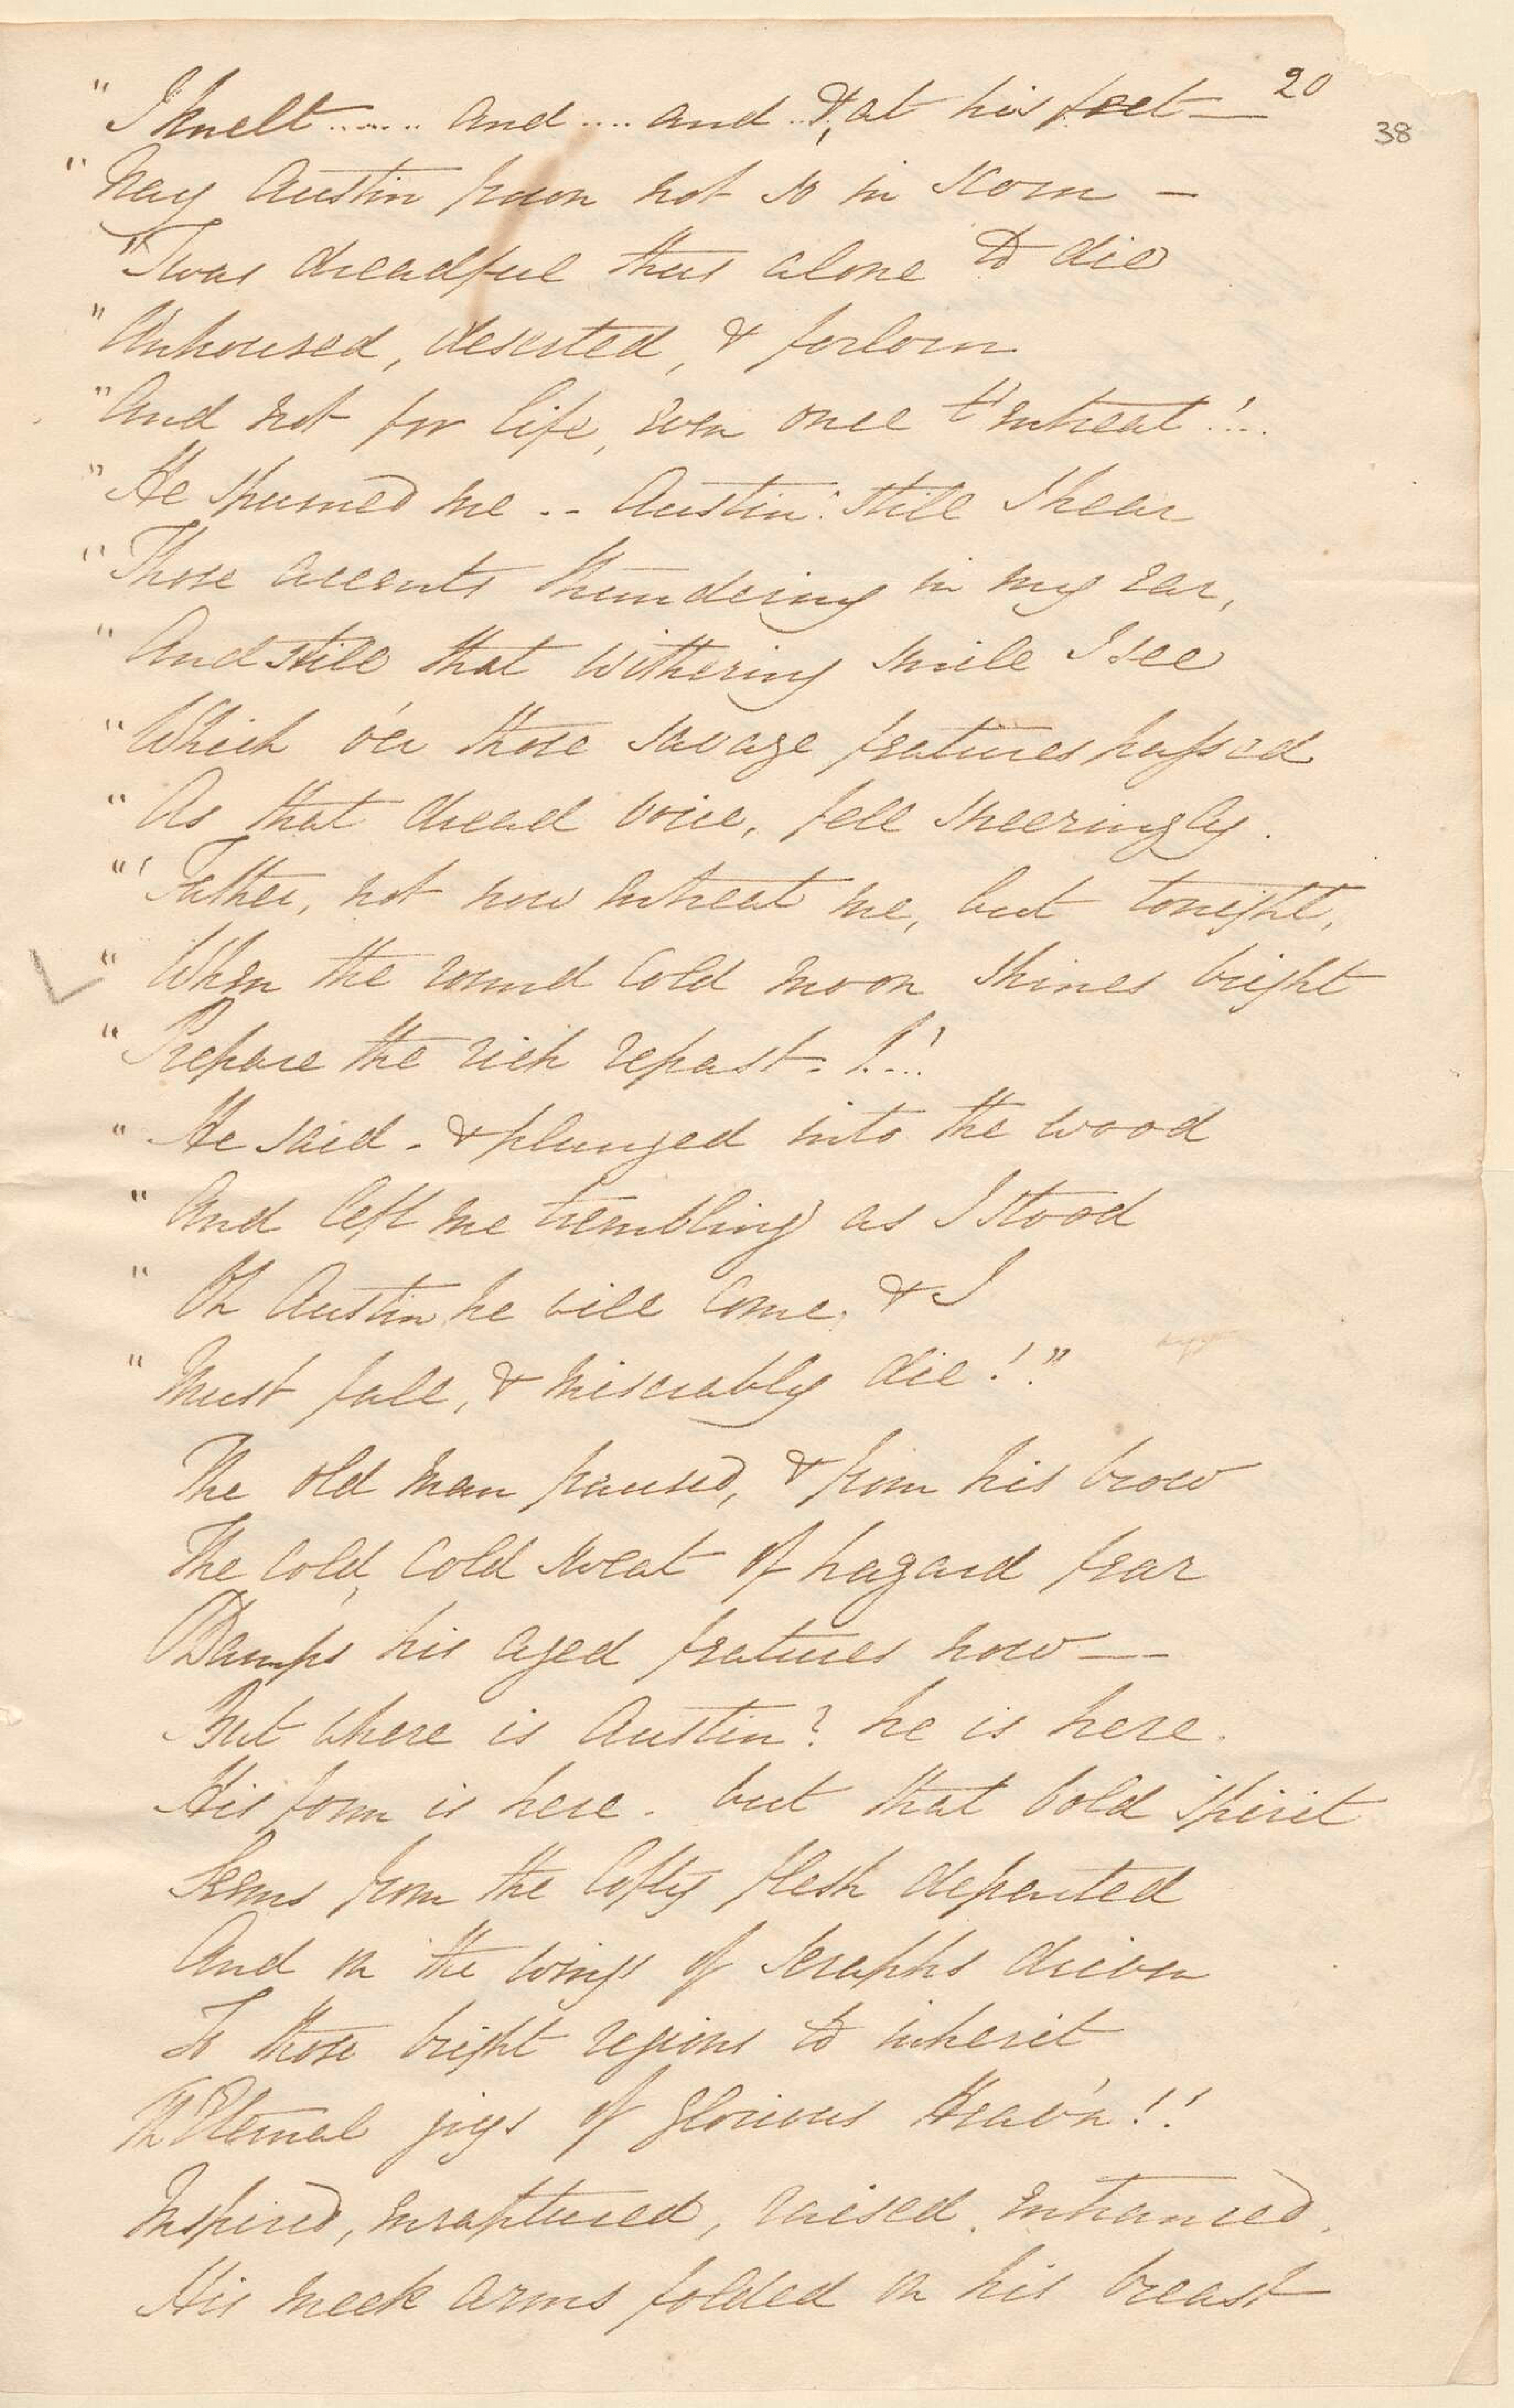 20
38
" I knelt ....... and .... and .. &, at his feet —
" Nay Austin frown not so in scorn —
" Twas dreadful thus alone to die
" Unhoused, deserted, & forlorn
" And not for life, even once t'entreat !...
" He spurned me .. Austin! still I hear
" Those accents thundering in my ear,
" And still that withering smile I see
" Which o'er those savage features passed
" As that dread voice, fell sneeringly.
"' Father, not now entreat me, but tonight,
" When the round cold moon shines bright
" Prepare the rich repast - !...'
" He said - & plunged into the wood
" And left me trembling as I stood
" Oh Austin, he will come, & I
" Must fall, & miserably die!"
The old man paused, & from his brow
The cold, cold sweat of hagard fear
Damps his aged features now —
But where is Austin? he is here.
His form is here. but that bold spirit
Seems from the lofty flesh departed
And on the wings of seraphs driven
To those bright regions to inherit
Th'Eternal joys of glorious Heav'n!!
Inspired, enraptured, raised, entranced,
His meek arms folded on his breast